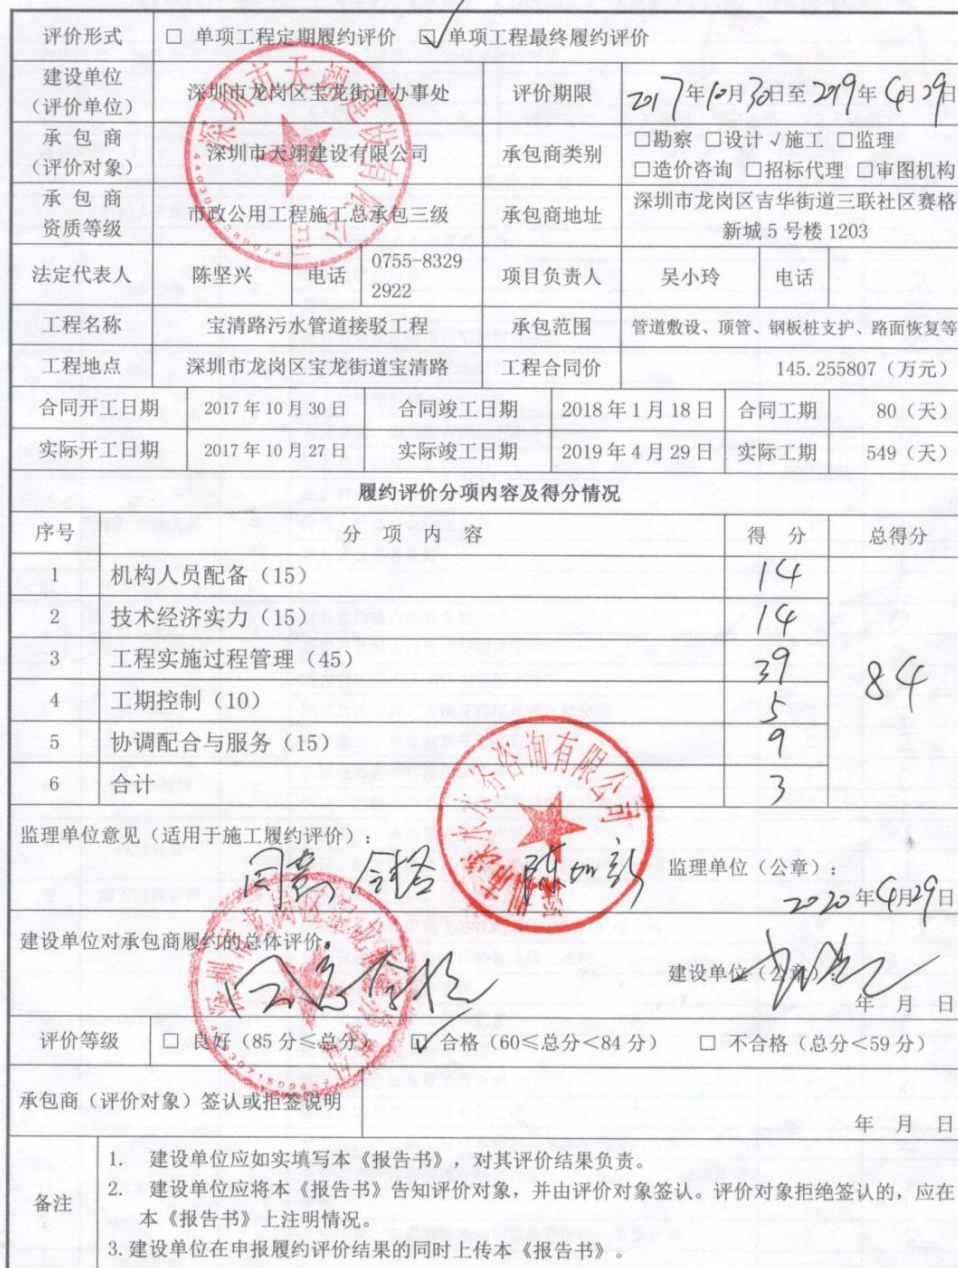 评价形式 □ 单项工程定期履约评价 ☑ 单项工程最终履约评价
建设单位
(评价单位)
深圳市龙岗区宝龙街道办事处
评价期限
2017年10月30日至2019年4月29日
承 包 商
(评价对象)
深圳市天翊建设有限公司
承包商类别
□勘察 □设计 √施工 □监理
□造价咨询 □招标代理 □审图机构
承 包 商
资质等级
市政公用工程施工总承包三级
承包商地址
深圳市龙岗区吉华街道三联社区赛格
新城 5 号楼 1203
法定代表人 陈坚兴 电话
0755-8329
2922
项目负责人 吴小玲 电话
工程名称 宝清路污水管道接驳工程 承包范围 管道敷设、顶管、钢板桩支护、路面恢复等
工程地点 深圳市龙岗区宝龙街道宝清路 工程合同价 145.255807(万元)
合同开工日期 2017 年 10 月 30 日 合同竣工日期 2018 年 1 月 18 日 合同工期 80(天)
实际开工日期 2017 年 10 月 27 日 实际竣工日期 2019 年 4 月 29 日 实际工期 549(天)
履约评价分项内容及得分情况
序号 分 项 内 容 得 分 总得分
1 机构人员配备(15) 14
2 技术经济实力(15) 14
3 工程实施过程管理(45) 39
84
4 工期控制(10) 5
5 协调配合与服务(15) 9
6 合计 3
监理单位意见(适用于施工履约评价):
同意 合格
监理单位(公章):
2020年4月29日
建设单位对承包商履约的总体评价。
同意合格
建设单位(公章)
年 月 日
评价等级 □ 良好(85 分≤总分) ☑ 合格(60≤总分<84 分) □ 不合格(总分<59 分)
承包商(评价对象)签认或拒签说明
年 月 日
备注
1. 建设单位应如实填写本《报告书》,对其评价结果负责。
2. 建设单位应将本《报告书》告知评价对象,并由评价对象签认。评价对象拒绝签认的,应在
本《报告书》上注明情况。
3. 建设单位在申报履约评价结果的同时上传本《报告书》。
深圳市天翊建设有限公司